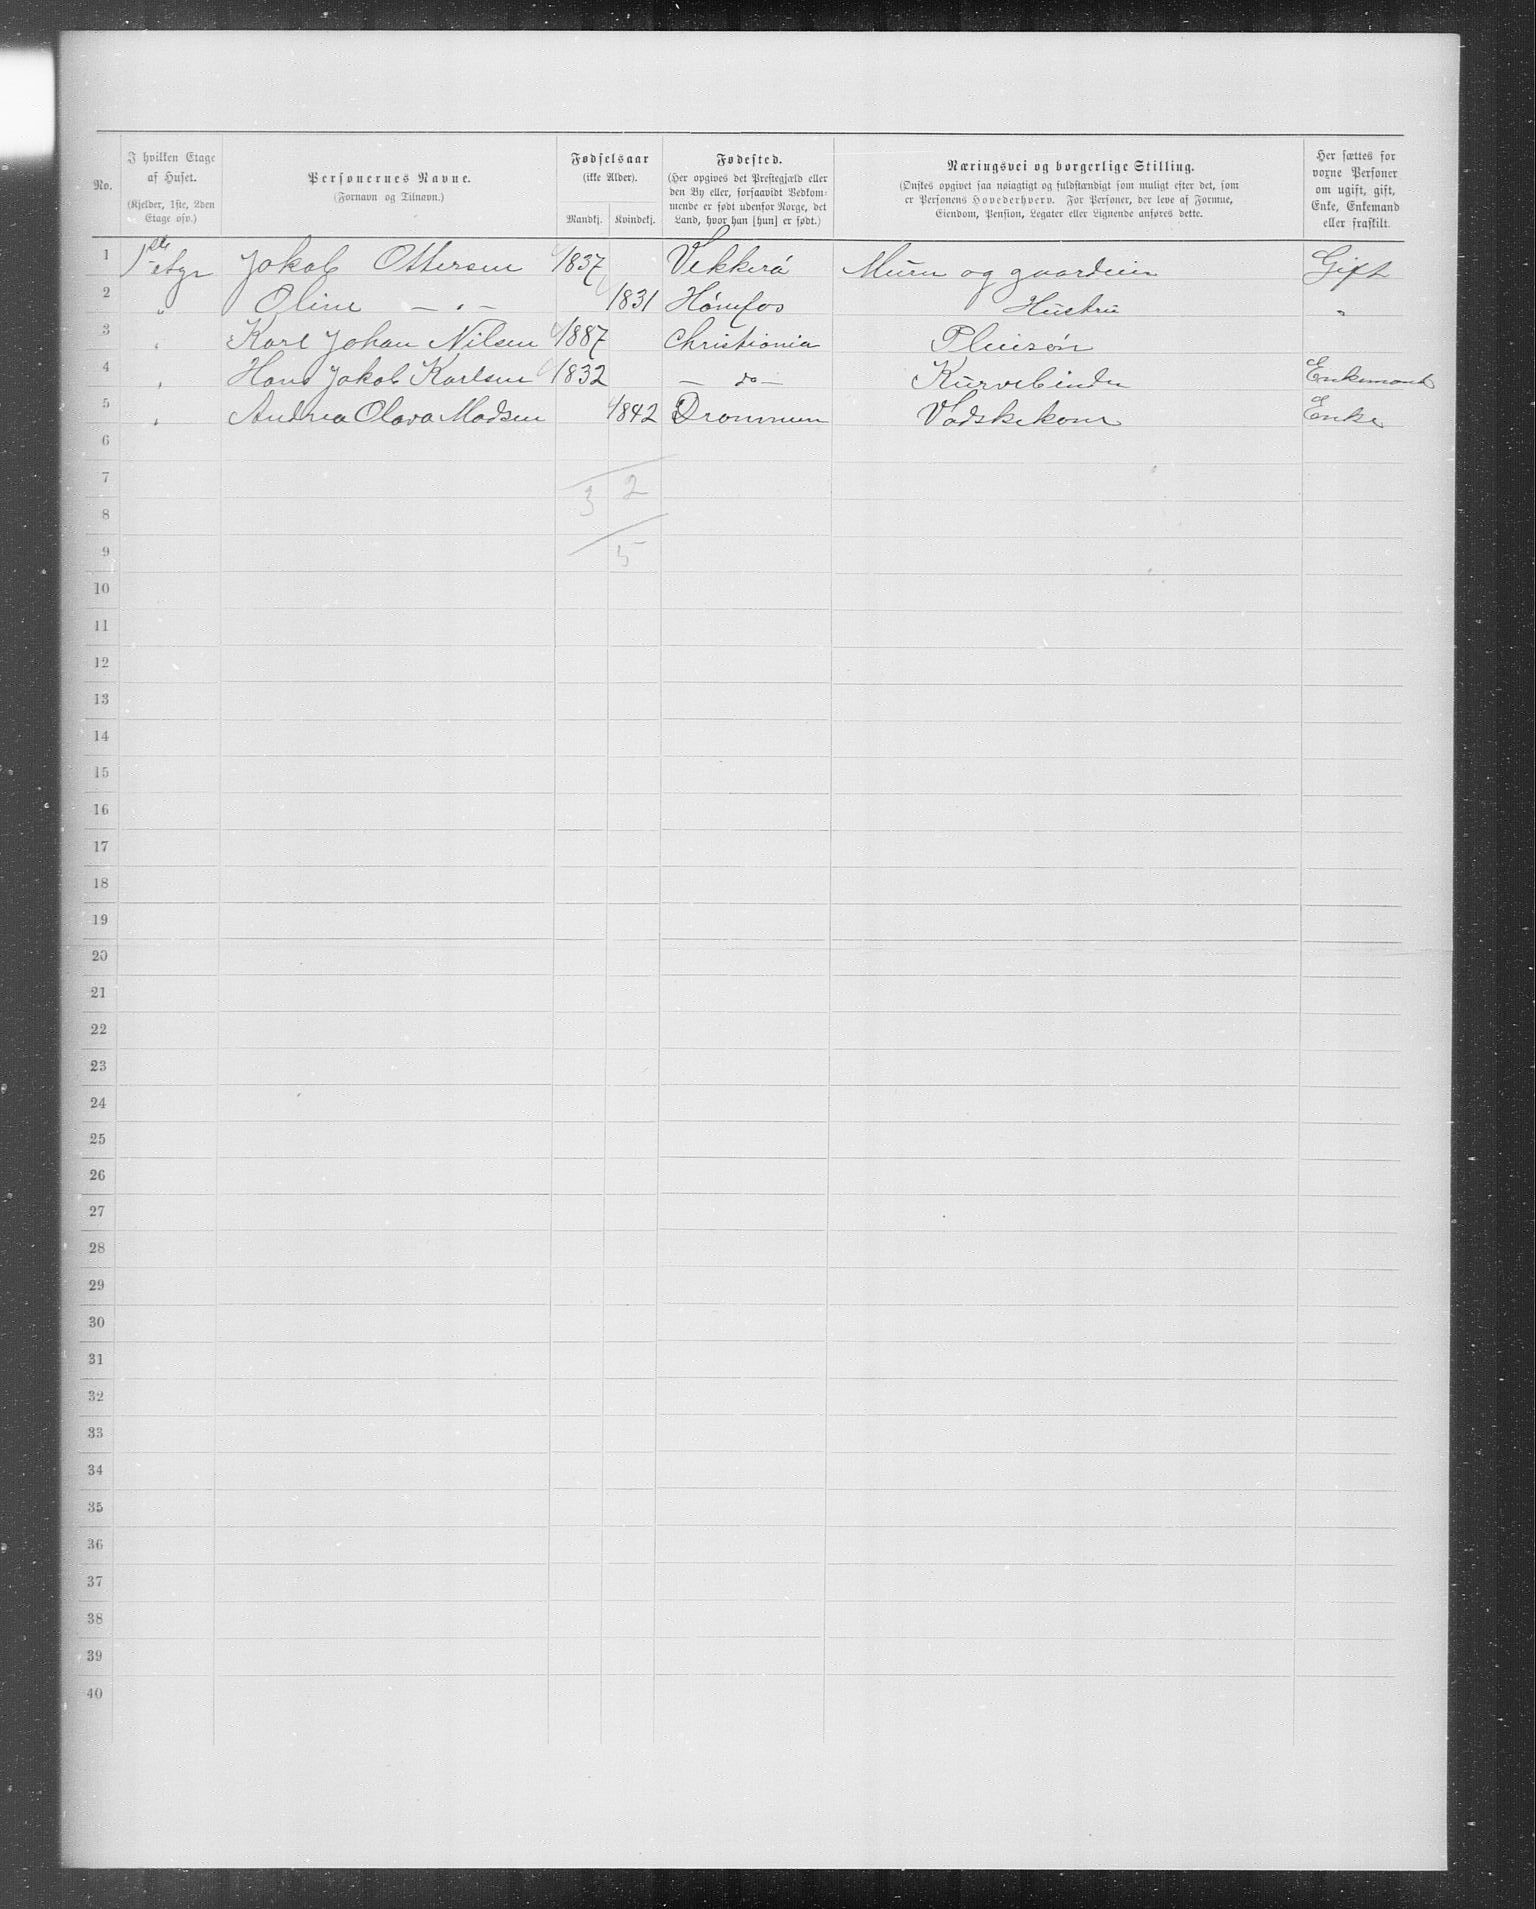 No.
I hvilken Etage af Huset.
(Kjelder, 1ste, 2den Etage osv.)
Personernes Navne.
(Fornavn og Tilnavn.)
Fødselsaar
(ikke Alder).
Mandkj. Kvindekj.
Fødested.
(Her opgives det Prestegjæld eller
den By eller, forsaavidt Vedkom-
mende er født udenfor Norge, det
Land, hvor han [hun] er født.)
Næringsvei og borgerlige Stilling.
(Ønskes opgivet saa nøiagtigt og fuldstændigt som muligt efter det, som
er Personens Hovederhverv. For Personer, der leve af Formue,
Eiendom, Pension, Legater eller Lignende anføres dette.
Her sættes for
voxne Personer
om ugift, gift,
Enke, Enkemand
eller fraskilt.
1 1ste etge Jakob Ottersen 1837 Vekkerö Murer og gaardeier Gift
2 " Oline — " — 1831 Hönefos Hustru "
3 " Karl Johan Nilsen 1887 Christiania Pleiesön
4 " Hans Jakob Karlsen 1832 — do — Kurvebinder Enkemand
5 " Andrea Olava Madsen 1842 Drammen Vadskekone Enke
6
7
3 2
8
9
5
10
11
12
13
14
15
16
17
18
19
20
21
22
23
24
25
26
27
28
29
30
31
32
33
34
35
36
37
38
39
40